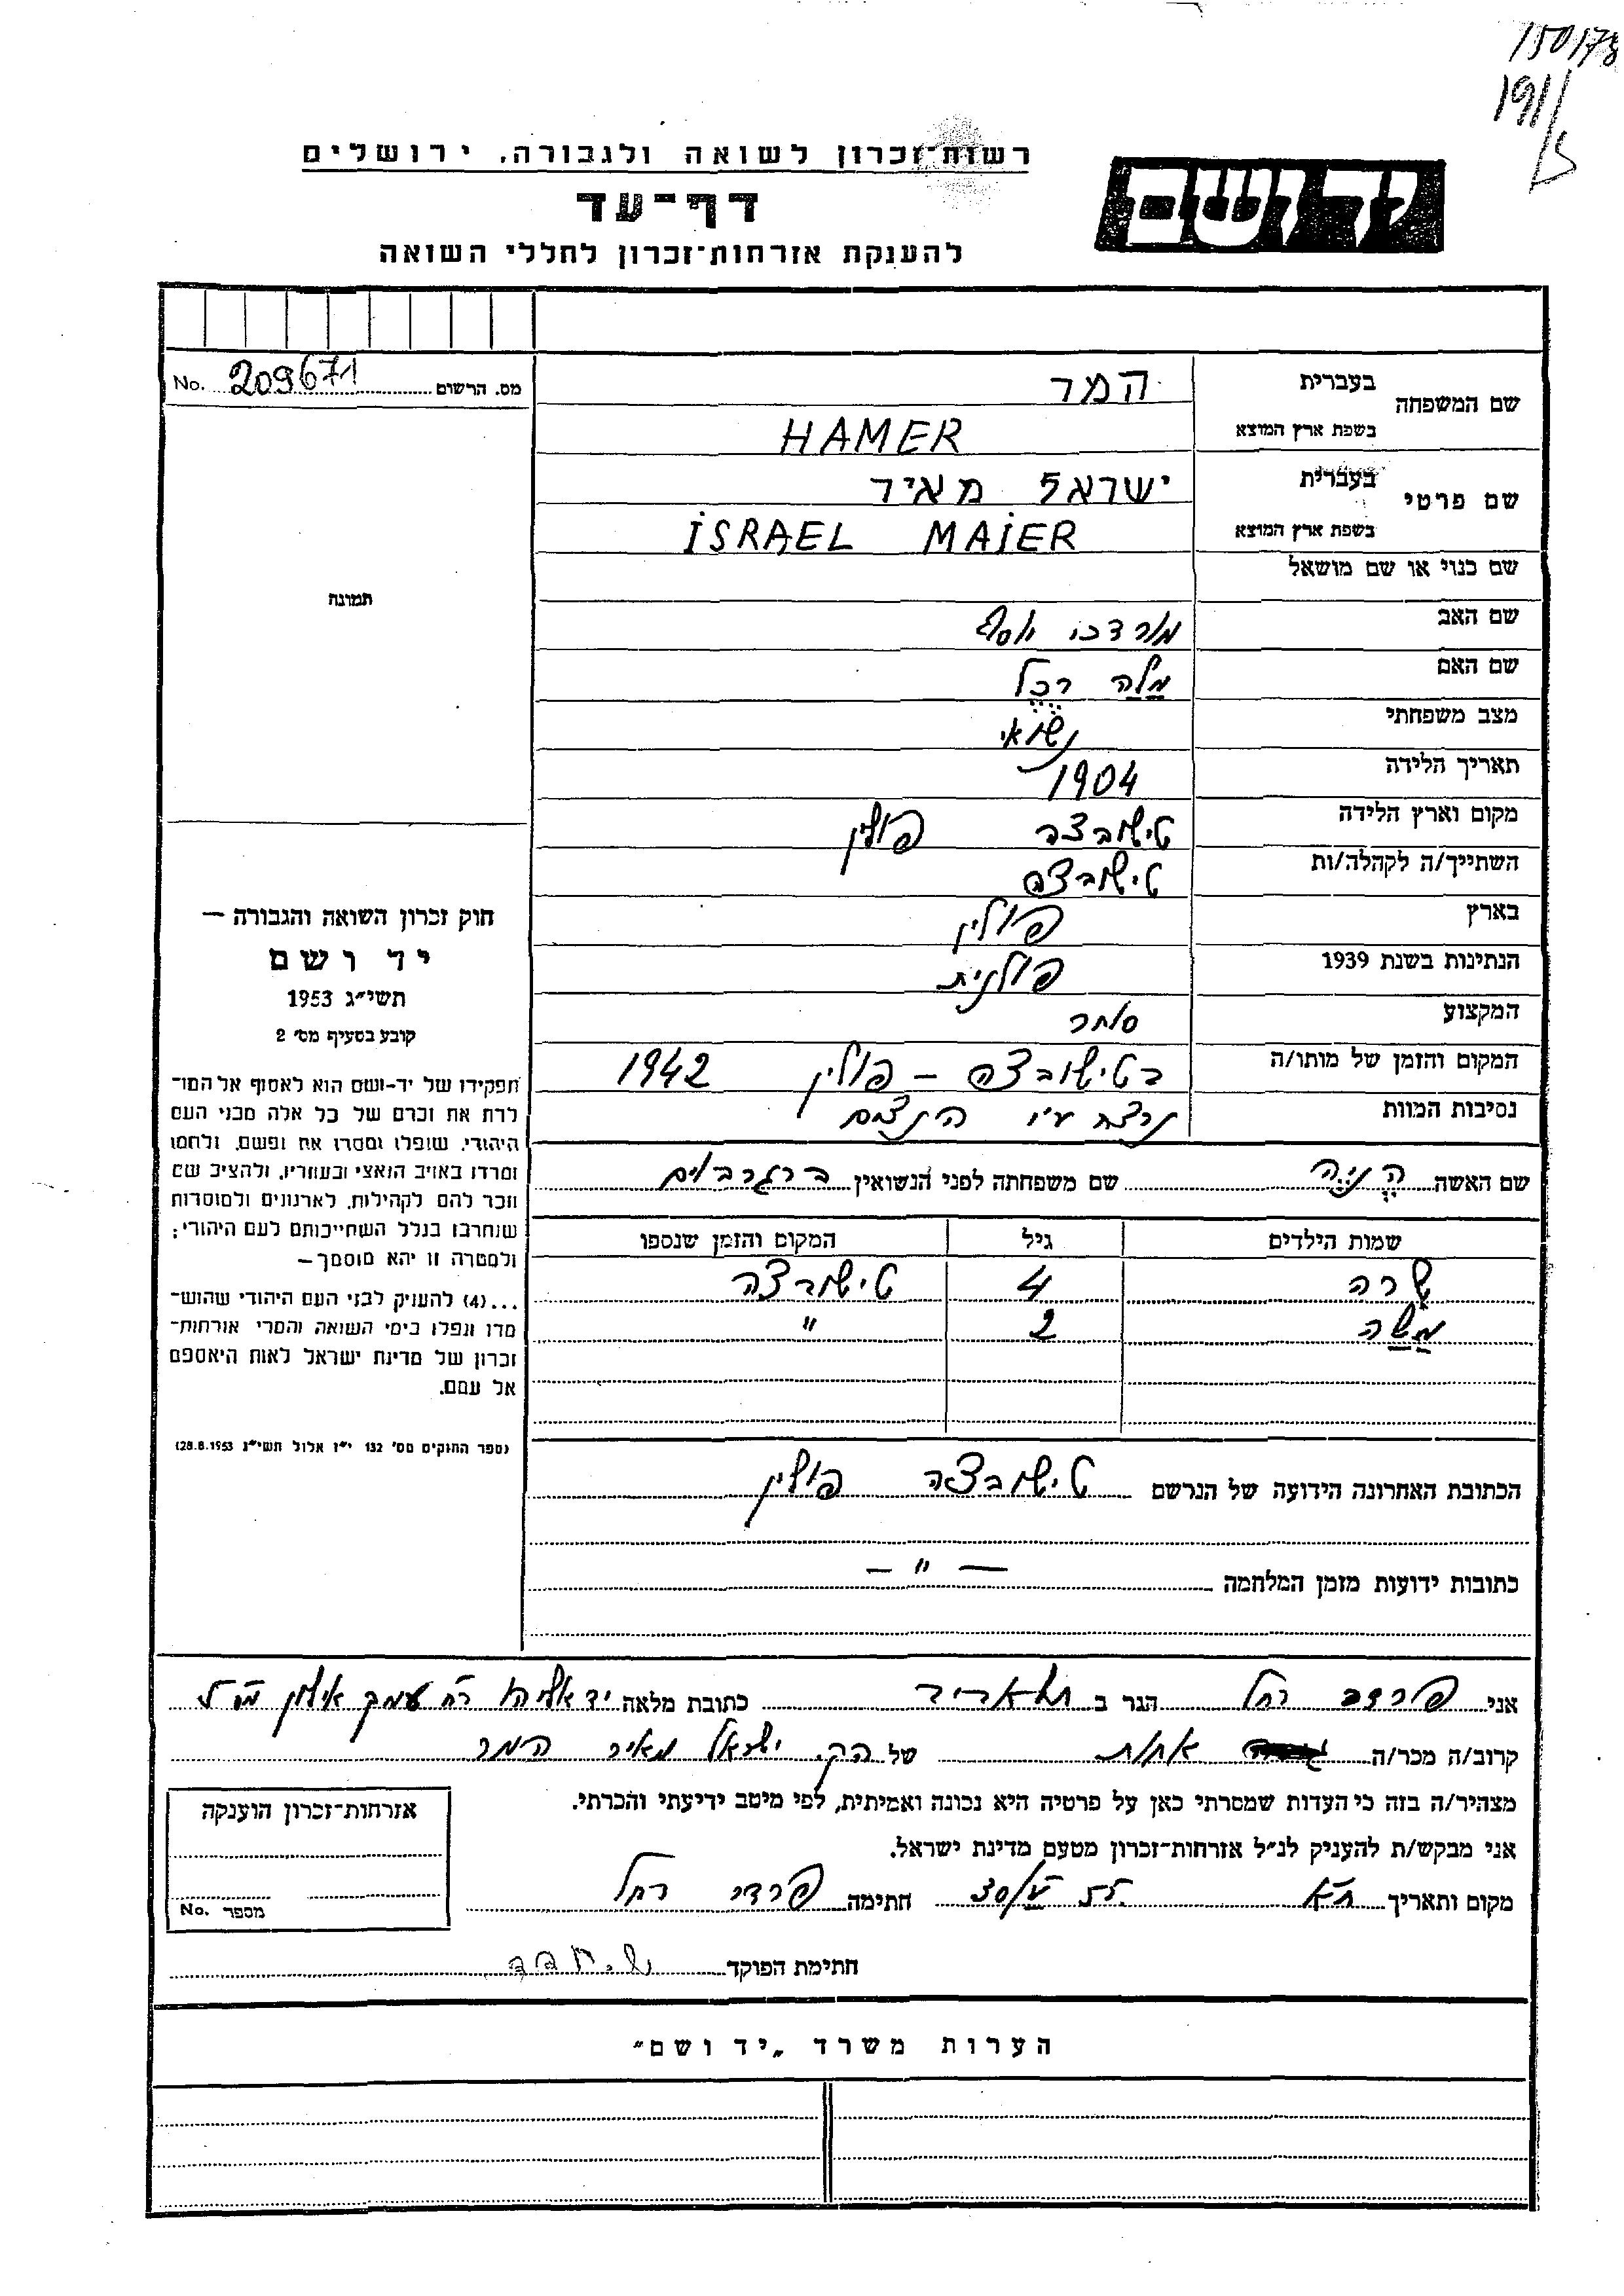 150178
1911
רשות-זכרון לשואה ולגבורה, ירושלים
יד ושם
דף-עד
להענקת אזרחות-זכרון לחללי השואה
שם המשפחה בעברית המר
בשפת ארץ המוצא HAMER
שם פרטי בעברית ישראל מאיר
בשפת ארץ המוצא ISRAEL MAIER
שם כנוי או שם מושאל
שם האב מורדכי יוסף
שם האם מלה רכל
מצב משפחתי נשואי
תאריך הלידה 1904
מקום וארץ הלידה טישובצה פולין
השתייך/ה לקהלה/ות טישובצה
בארץ פולין
הנתינות בשנת 1939 פולנית
המקצוע סוחר
המקום והזמן של מותו/ה בטישובצה – פולין 1942
נסיבות המוות נרצח ע"י הנצים
מס. הרשום 209671 No.
תמונה
חוק זכרון השואה והגבורה —
יד ושם
תשי"ג 1953
קובע בסעיף מס' 2
תפקידו של יד-ושם הוא לאסוף אל המו-
לדת את זכרם של כל אלה מבני העם
היהודי, שנפלו ומסרו את נפשם, נלחמו
ומרדו באויב הנאצי ובעוזריו, ולהציב שם
וזכר להם לקהילות, לארגונים ולמוסדות
שנחרבו בגלל השתייכותם לעם היהודי;
ולמטרה זו יהא מוסמך—
...(4) להעניק לבני העם היהודי שהוש-
מדו ונפלו בימי השואה והמרי אזרחות-
זכרון של מדינת ישראל לאות היאספם
אל עמם.
(ספר החוקים מס' 132 י"ז אלול תשי"ג 28.8.1953)
שם האשה הניה שם משפחתה לפני הנשואין
שמות הילדים גיל המקום והזמן שנספו
שרה 4 טישובצה
משה 2 "
הכתובת האחרונה הידועה של הנרשם טישובצה פולין
כתובות ידועות מזמן המלחמה — " —
אני רחל הגר ב כתובת מלאה יד אליהו רח עמק אילון
קרוב/ה מכר/ה אחות של ישראל מאיר המר
מצהיר/ה בזה כי העדות שמסרתי כאן על פרטיה היא נכונה ואמיתית, לפי מיטב ידיעתי והכרתי.
אני מבקש/ת להעניק לנ"ל אזרחות-זכרון מטעם מדינת ישראל.
מקום ותאריך ת"א חתימה רחל
חתימת הפוקד
אזרחות-זכרון הוענקה
מספר No.
הערות משרד „יד ושם"